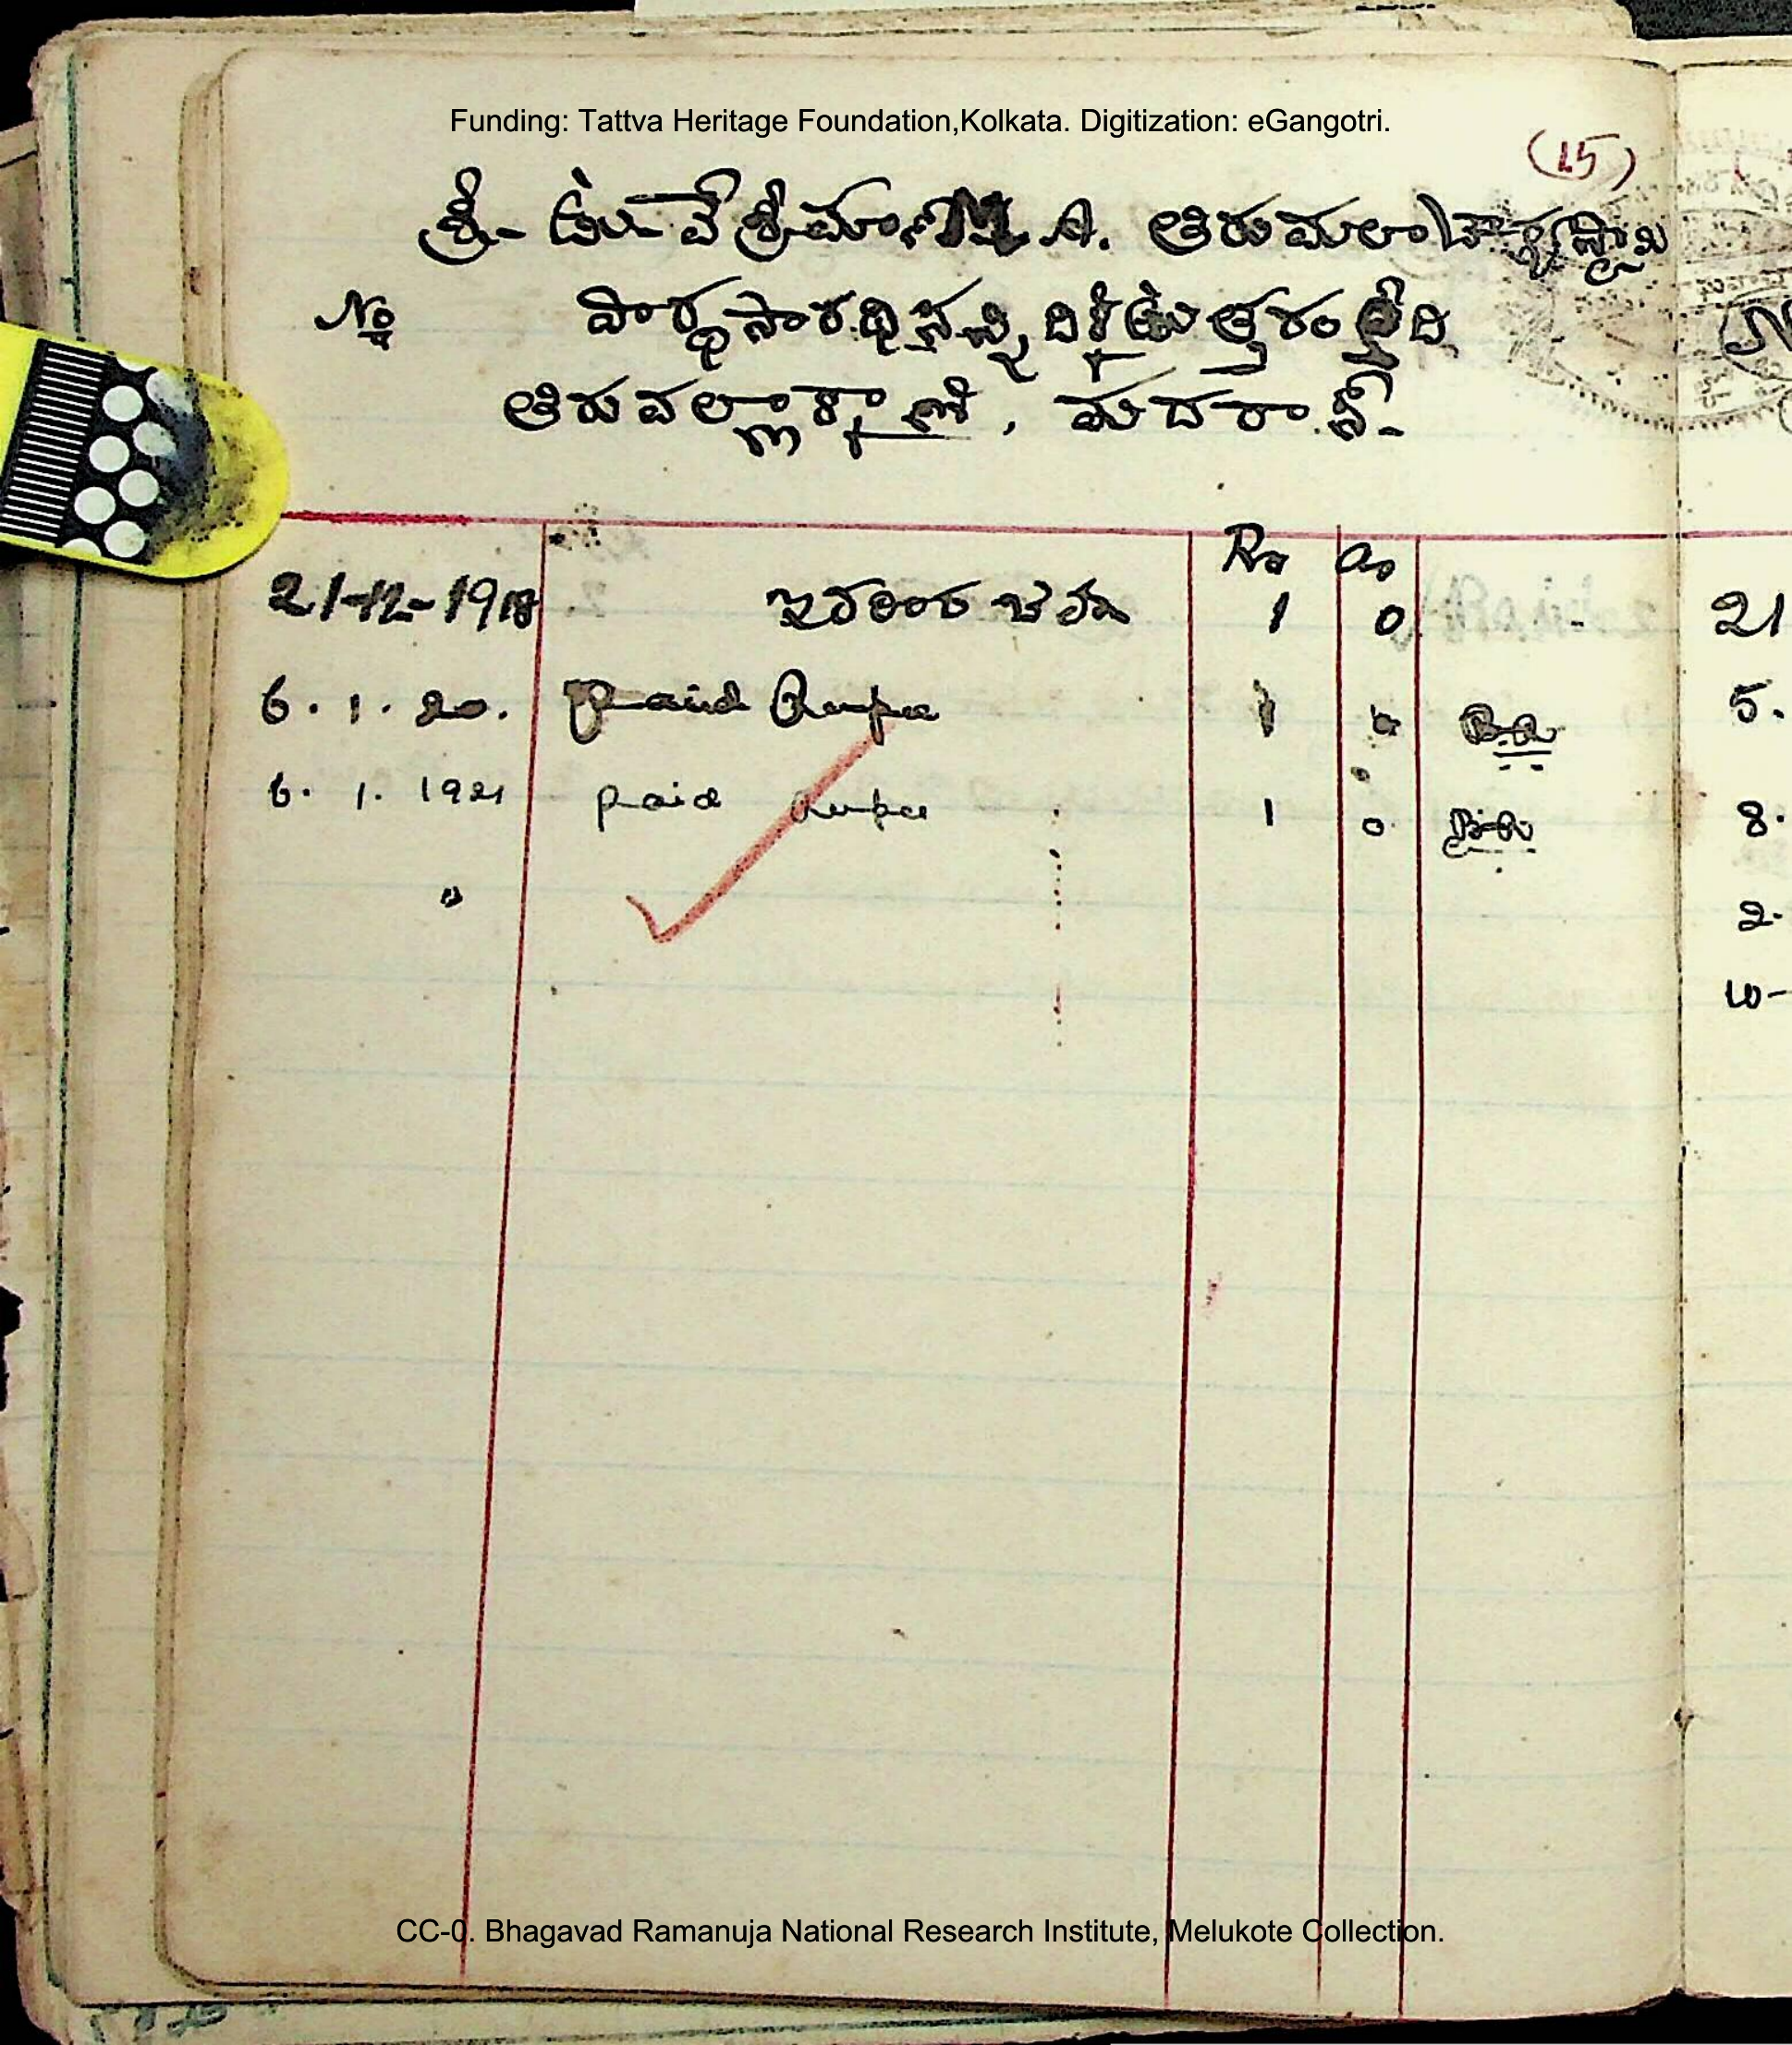 Funding: Tattva Heritage Foundation,Kolkata. Digitization: eGangotri.
(15)
శ్రీ- ఉ-వే శ్రీమాన్ M. A. తిరుమలాచార్యస్వామి
No పార్థసారథి సన్నిధి
తిరువల్లిక్కేణి, మదరాస్-
Rs as
21-12-1918 1 0
6. 1. 20. paid Rupee 1 0
6. 1. 1921 paid Rupee 1 0
"
21
5.
8.
2.
10-
CC-0. Bhagavad Ramanuja National Research Institute, Melukote Collection.